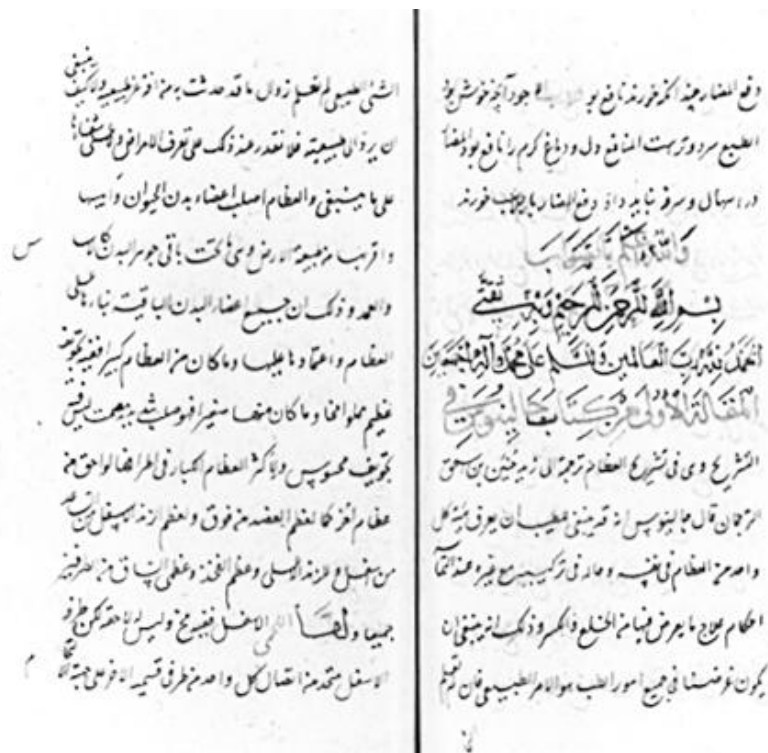 دفع المضار چند اکر خورند نافع بود جو و آنچه خوش بود
الطبع سرد و ترست المنافع دل و دماغ کرم را نافع بود المضار
در اسهال و سرفه نباید داد دفع المضار با خورند
والله اعلم بالصواب
بسم الله الرحمن الرحيم وبه ثقتي
الحمد لله رب العالمين والسلم على محمد وآله اجمعين
المقالة الاولى من كتاب جالينوس في
التشريح وهي في تشريح العظام ترجمة ابي زيد حنين بن اسحق
الترجمان قال جالينوس انه قد ينبغي للطبيب ان يعرف هيئة كل
واحد من العظام في نفسه وحاله في تركيبه مع غيره عند التماس
احكام علاج ما يعرض فيها من الخلع والكسر وذلك انه ينبغي ان
يكون غرضنا في جميع امور الطب هو الامر الطبيعي فان لم تعلم
الشي الطبيعي لم تعلم زوال ما قد حدثت به من افة غير طبيعية ولا كيف ينبغي
ان يرد الى طبيعته فلا نقدر عند ذلك على تعرف الامراض ولا على شفاها
على ما ينبغي والعظام اصلب اعضاء بدن الحيوان وايبسها
واقربها من طبيعة الارض وهي تحت باقي جوهر البدن كالاساس
والعمد وذلك ان جميع اعضاء البدن الباقية بناءها على
العظام واعتمادها عليها وما كان من العظام كبيرا ففيه تجويف
عظيم مملو مخا وما كان منها صغيرا فهو صلب مصمت ليس فيه
تجويف محسوس ولاكثر العظام الكبار في اطرافها لواحق من
عظام اخر كما لعظم العضد من فوق ولعظم الزند الاسفل من
من اسفل وللزند الاعلى وعظم الفخذ وعظمي الساق من الطرفين
جميعا واما اللحى الاسفل ففيه مخ وليس له لاحقة لكن طرفه
الاسفل متحد من اتصال كل واحد من طرفي قسيمه الاخر على جهة